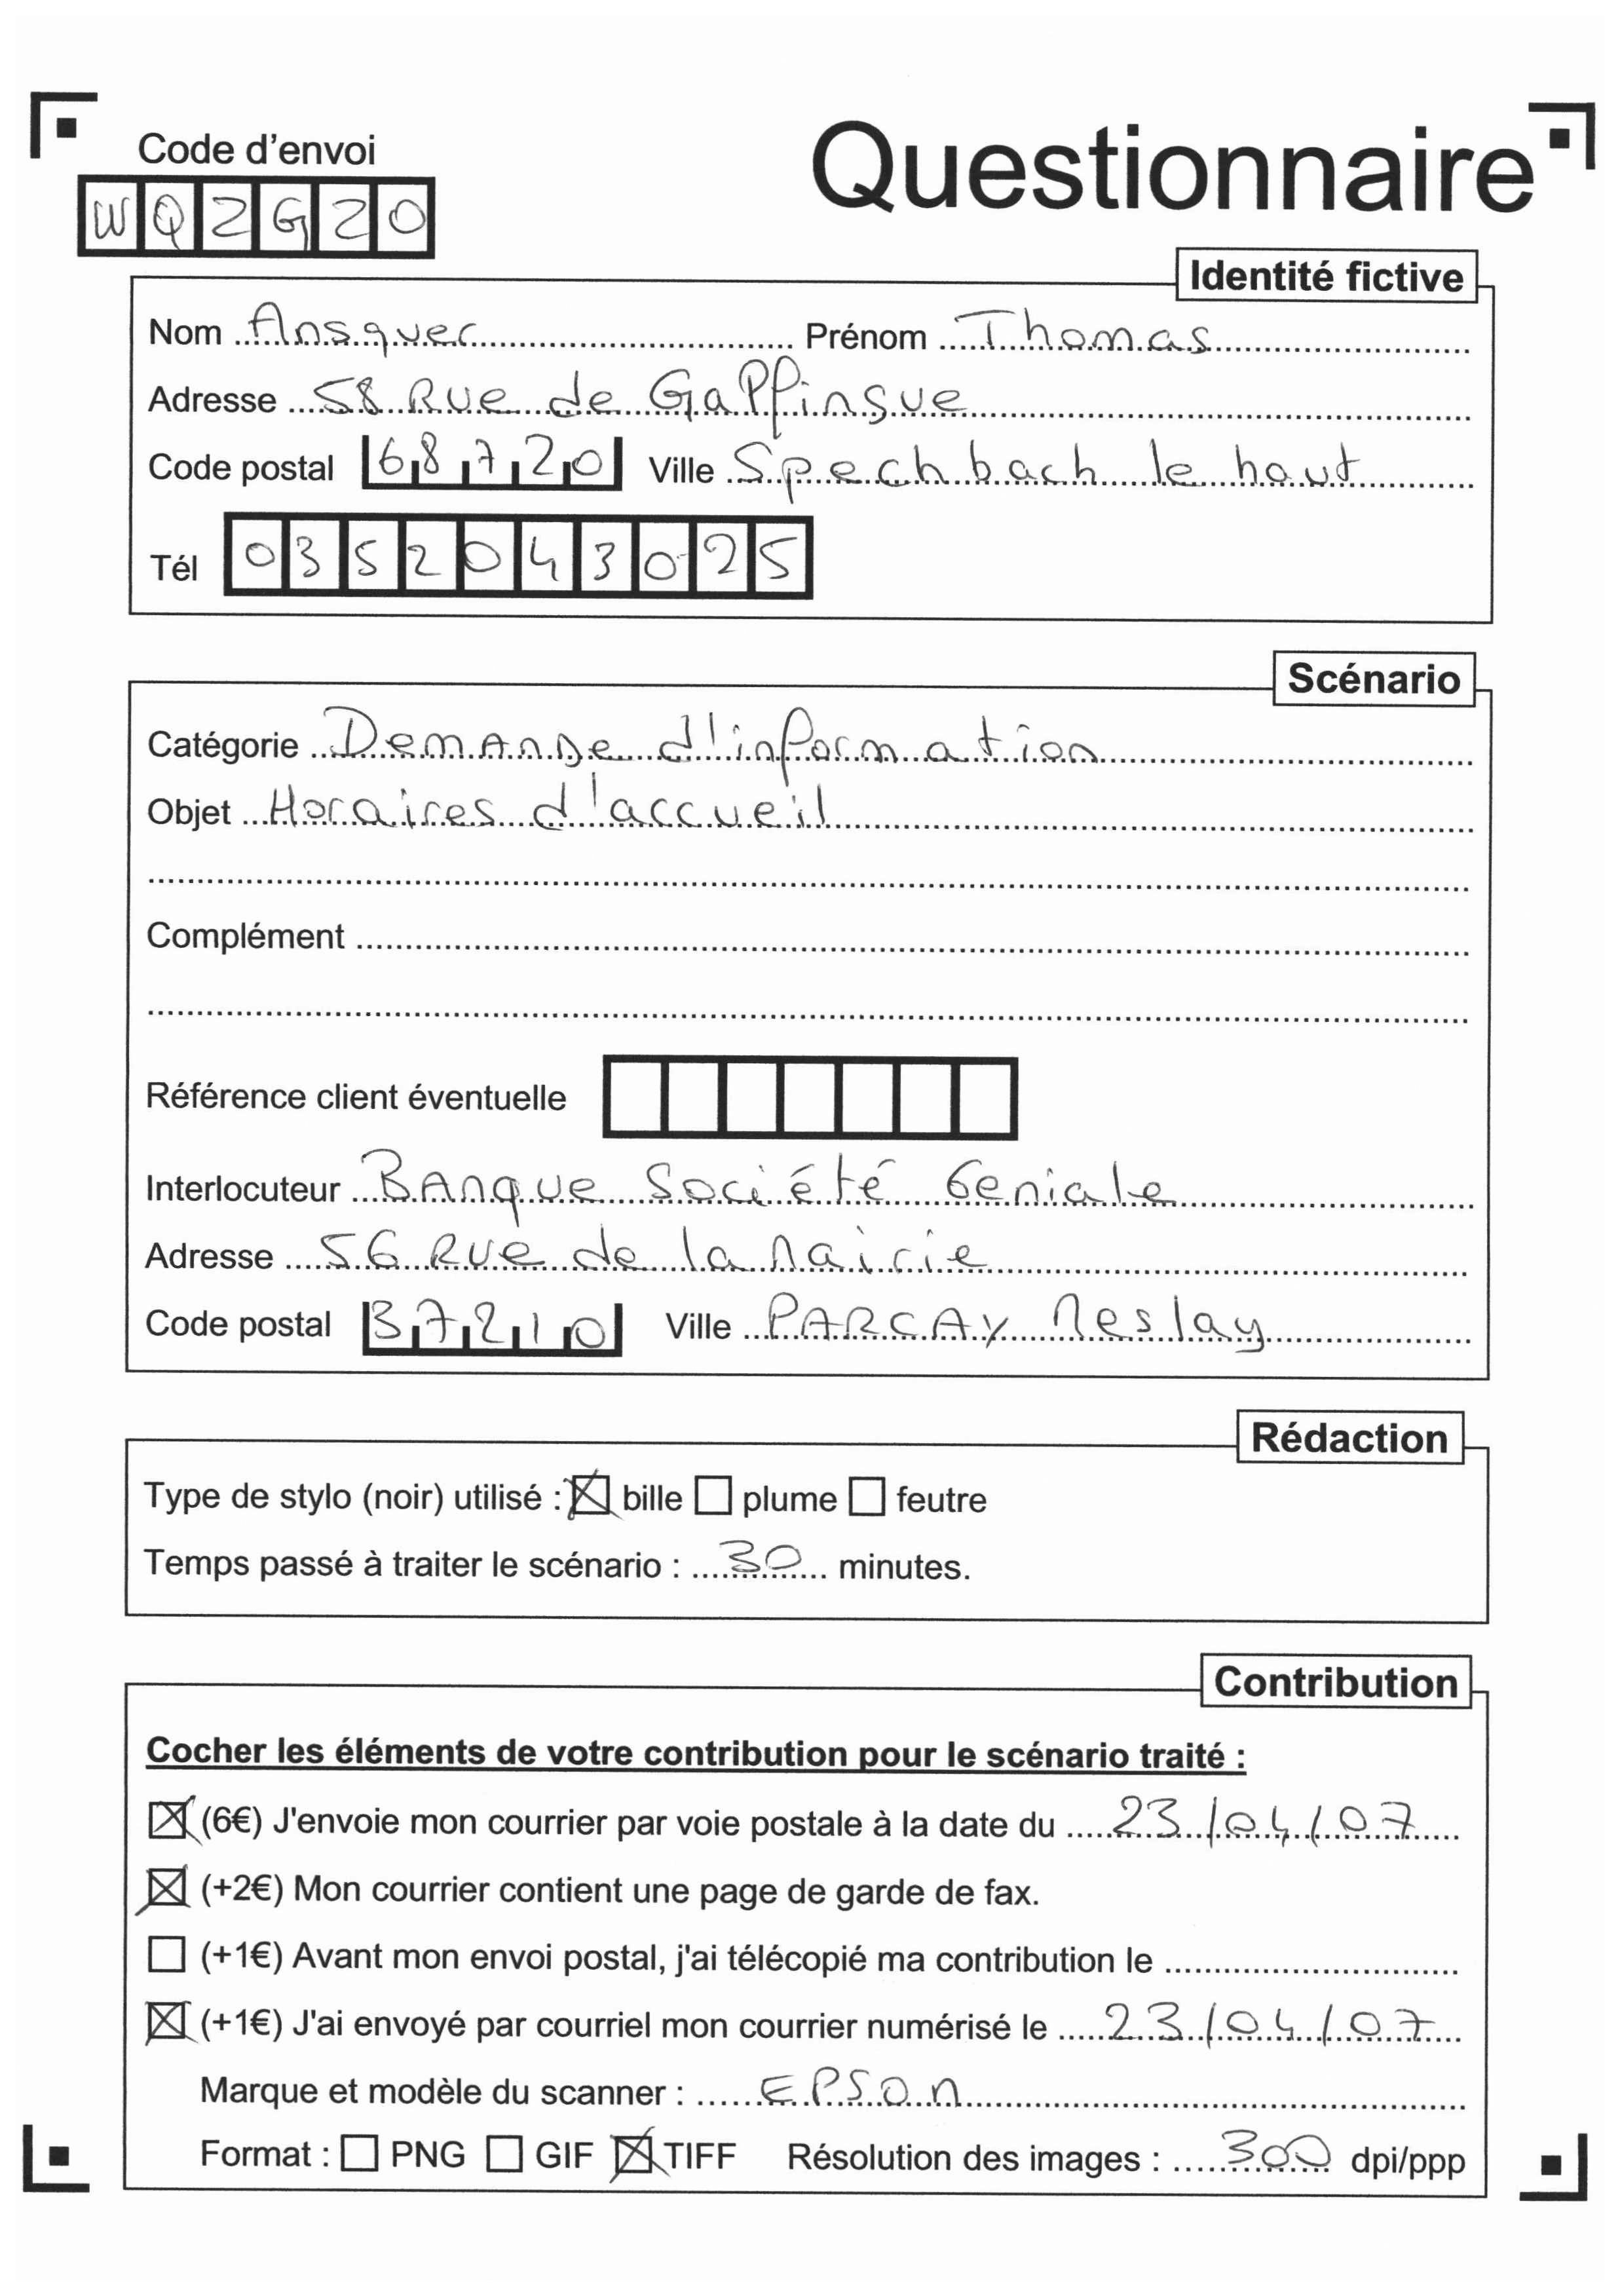 Code d'envoi
Questionnaire
WQZGZO
Identité fictive
Nom Ansquer Prénom Thomas
Adresse 58 Rue de Gaffingue
Code postal 68720 Ville Spechbach le haut
Tél 0352043025
Scénario
Catégorie Demande d'information
Objet Horaires d'accueil
Complément
Référence client éventuelle
Interlocuteur Banque Société Geniale
Adresse 56 Rue de la Mairie
Code postal 37210 Ville PARCAY Meslay
Rédaction
Type de stylo (noir) utilisé : bille plume feutre
Temps passé à traiter le scénario : 30 minutes.
Contribution
Cocher les éléments de votre contribution pour le scénario traité :
(6€) J'envoie mon courrier par voie postale à la date du 23/04/07
(+2€) Mon courrier contient une page de garde de fax.
(+1€) Avant mon envoi postal, j'ai télécopié ma contribution le
(+1€) J'ai envoyé par courriel mon courrier numérisé le 23/04/07
Marque et modèle du scanner : EPSON
Format : PNG GIF TIFF Résolution des images : 300 dpi/ppp